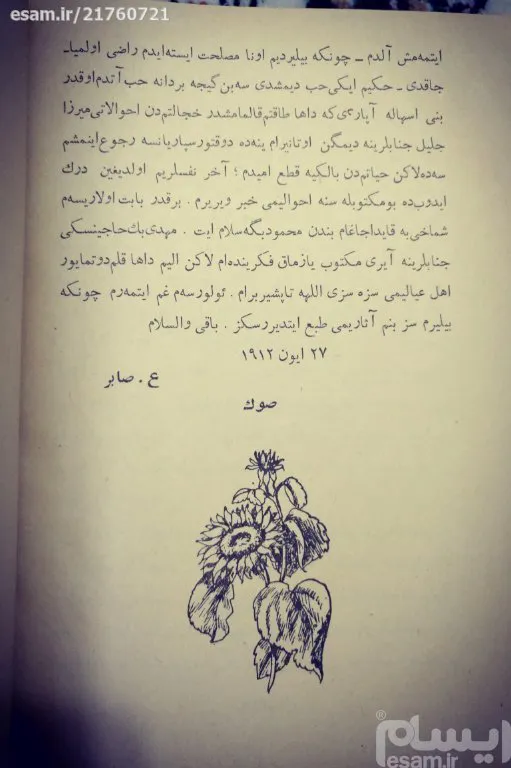 esam.ir/21760721
ایتمه‌مش آلدم ــ چونکه بیلیردیم اونا مصلحت ایسته‌ایدم راضی اولمیاـ
جاقدی ــ حکیم ایکی حب دیمشدی سه‌بن گیجه بردانه حب آتدم اوقدر
بنی اسهاله آپاردی‌که داها طاقتم قالمامشدر خجالتم‌دن احوالاتی میرزا
جلیل جنابلرینه دیمگن اوتانیرام ینه‌ده دوقتور سیاریانسه رجوع ایتمشم
سه‌ده لاکن حیاتم‌دن بالکیه قطع امیدم ؛ آخر نفسلریم اولدیغین درك
ایدوب‌ده بومکتوبله سنه احوالیمی خبر ویریرم . برقدر بابت اولاریسه‌م
شماخی‌یه قایداجاغام بندن محمودبگه‌سلام ایت . مهدی‌بك حاجینسکی
جنابلرینه آیری مکتوب یازماق فکرینده‌ام لاکن الیم داها قلم‌دوتمایور
اهل عیالیمی سزه سزی اللهه تاپشیربرام . ئولورسه‌م غم ایتمه‌رم چونکه
بیلیرم سز بنم آثاریمی طبع ایتدیررسکز . باقی والسلام
۲۷ ایون ۱۹۱۲
ع . صابر
صوك
ایسام
esam.ir